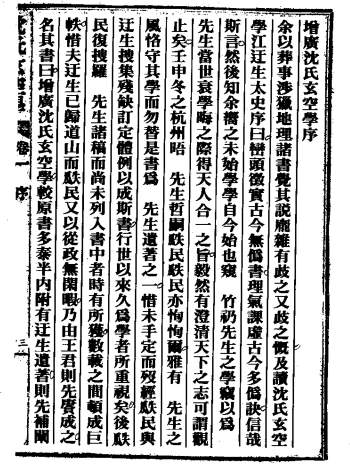 增廣沈氏玄空學序
余以葬事涉獵地理諸書覺其說龐雜有歧之又歧之慨及讀沈氏玄空
學江迂生太史序曰巒頭徵實古今無僞書理氣課虛古今多僞訣信哉
斯言然後知余嚮之未始學學自今始也窺 竹礽先生之學竊以爲
先生當世衰學晦之際得天人合一之旨毅然有澄清天下之志可謂觀
止矣壬申冬之杭州晤 先生哲嗣瓞民瓞民亦恂恂爾雅有 先生之
風恪守其學而勿替是書爲 先生遺著之一惜未手定而歿經瓞民與
迂生搜集殘缺訂定體例以成斯書行世以來久爲學者所重視矣後瓞
民復搜羅 先生諸稿而尚未列入書中者時有所獲數載之間頓成巨
帙惜夫迂生已歸道山而瓞民又以從政無閑暇乃由王君則先賡成之
名其書曰增廣沈氏玄空學較原書多泰半內附有迂生遺著則先補闕
卷一 序